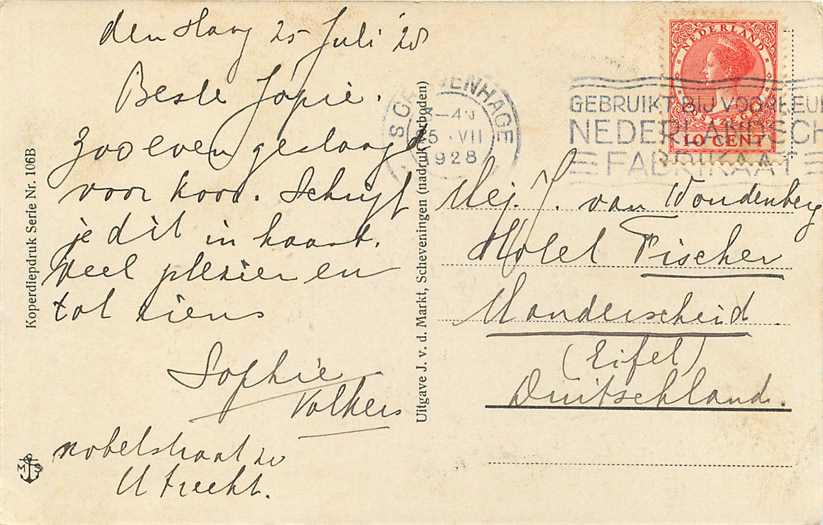 den Haag 25 Juli '28
Beste Jopie.
Zooeven geslaagd
voor koor. Schrijf
je dit in haast.
Veel plezier en
tot ziens
Sophie
Volkers
Nobelstraat 20
Utrecht.
Koperdiepdruk Serie Nr. 106B
Uitgave J. v. d. Markt, Scheveningen (nadruk verboden)
S'GRAVENHAGE
VII
1928
GEBRUIKT BIJ VOORKEUR
NEDERLANDSCH
FABRIKAAT
NEDERLAND
10 CENT
Mej. J. van Woudenberg
Hotel Fischer
Manderscheid
(Eifel)
Duitschland.